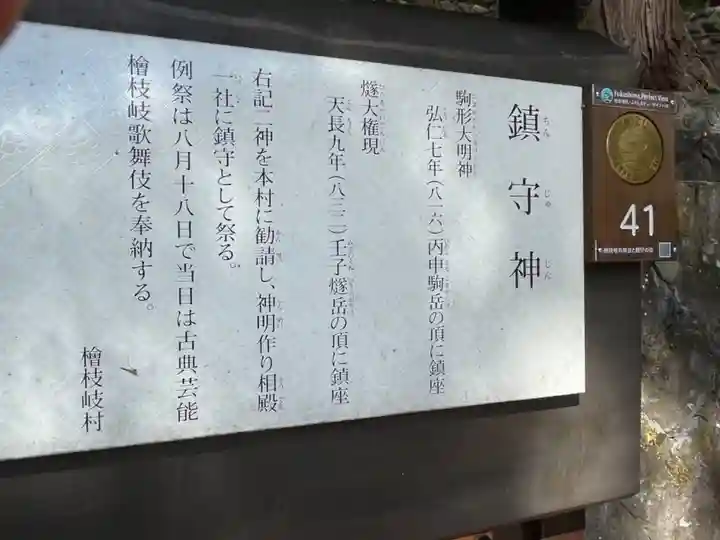 鎮守神
ちん じゅ じん
駒形大明神
弘仁七年(八一六)丙申駒岳の頂に鎮座
燧大権現
天長九年(八三二)壬子燧岳の頂に鎮座
右記二神を本村に勧請し、神明作り相殿
一社に鎮守として祭る。
例祭は八月十八日で当日は古典芸能
檜枝岐歌舞伎を奉納する。
檜枝岐村
Fukushima Perfect View
41